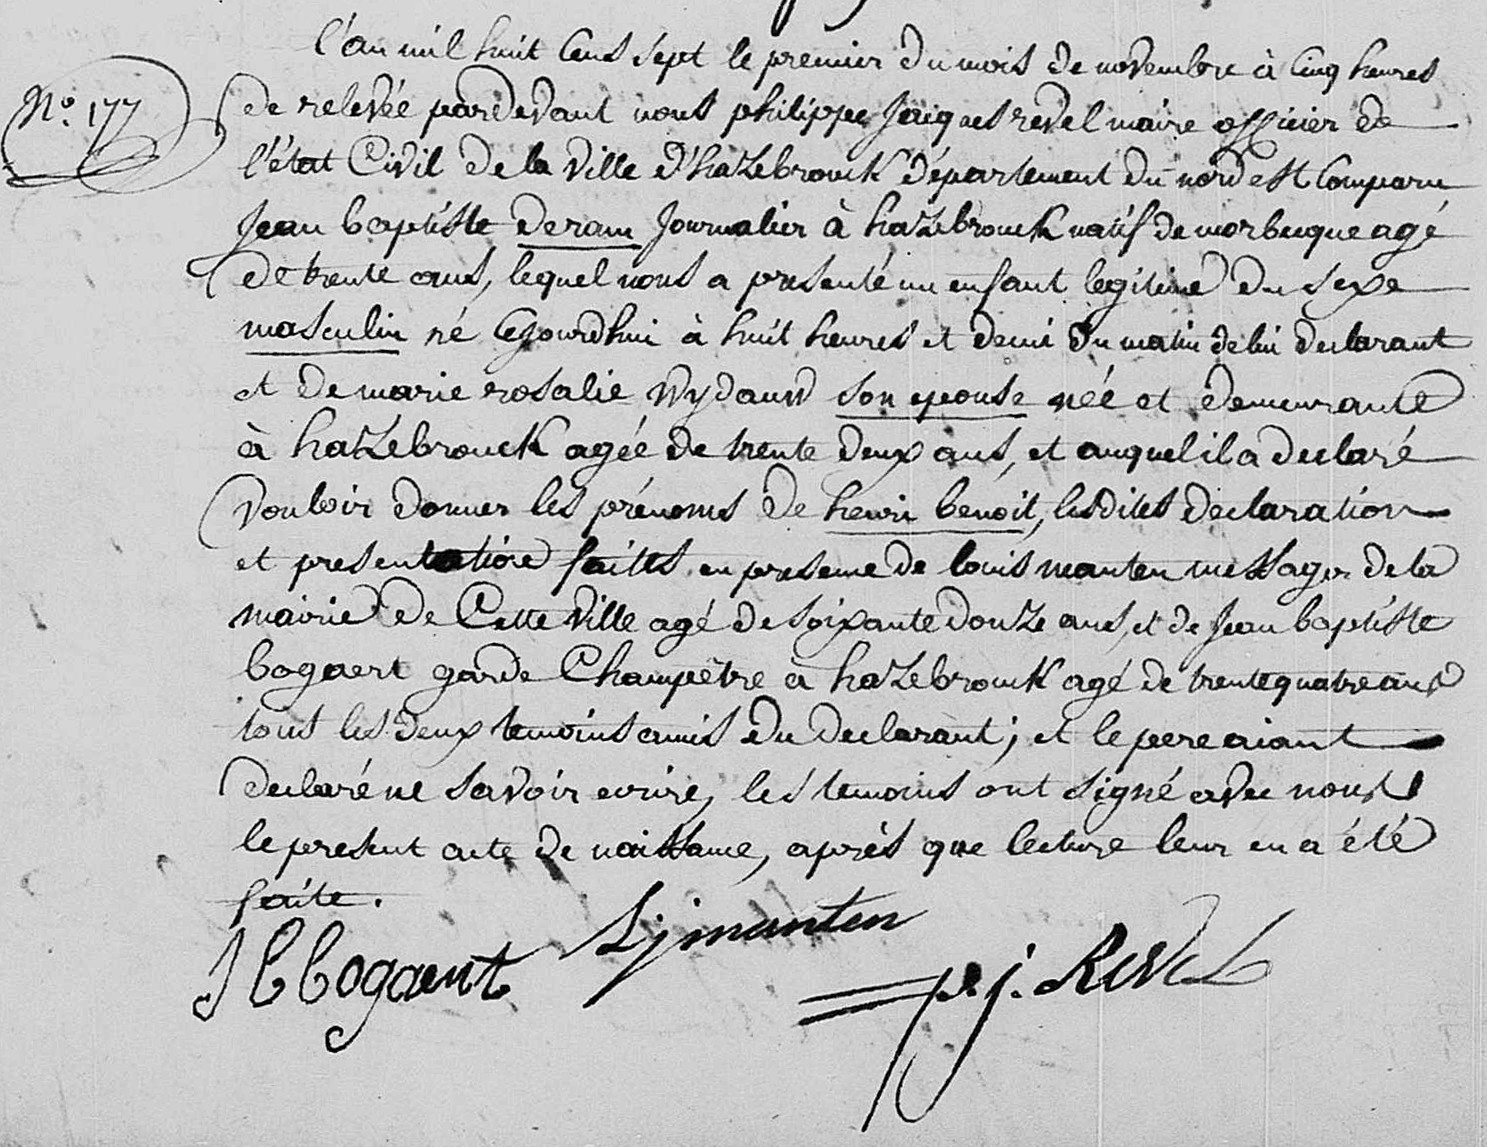 l'an mil huit Cens sept le premier du mois de novembre à Cinq heures
N.° 177
de relevée pardevant nous philippe Jacques revel maire officier de
l'état Civil de la ville d'hazebrouck département du nord est Comparu
Jean baptiste deram Journalier à hazebrouck natif de morbecque agé
de trente ans, lequel nous a presenté un enfant legitime du sexe
masculin né Cejourdhui à huit heures et demi du matin de lui declarant
et de marie rosalie Wydauw son epouse née et demeurante
à hazebrouck agée de trente deux ans, et auquel il a declaré
vouloir donner les prénoms de henri benoit, lesdites declaration
et presentation faites en presence de louis manten messager de la
mairie de Cette ville agé de soixante douze ans, et de Jean baptiste
bogaert garde Champêtre a hazebrouck agé de trente quatre ans
tous les deux temoins amis du declarant; et le pere aiant
declaré ne savoir ecrire, les temoins ont signé avec nous
le present acte de naissance, après que lecture leur en a été
faite.
J b bogaert L j manten p. j. Revel